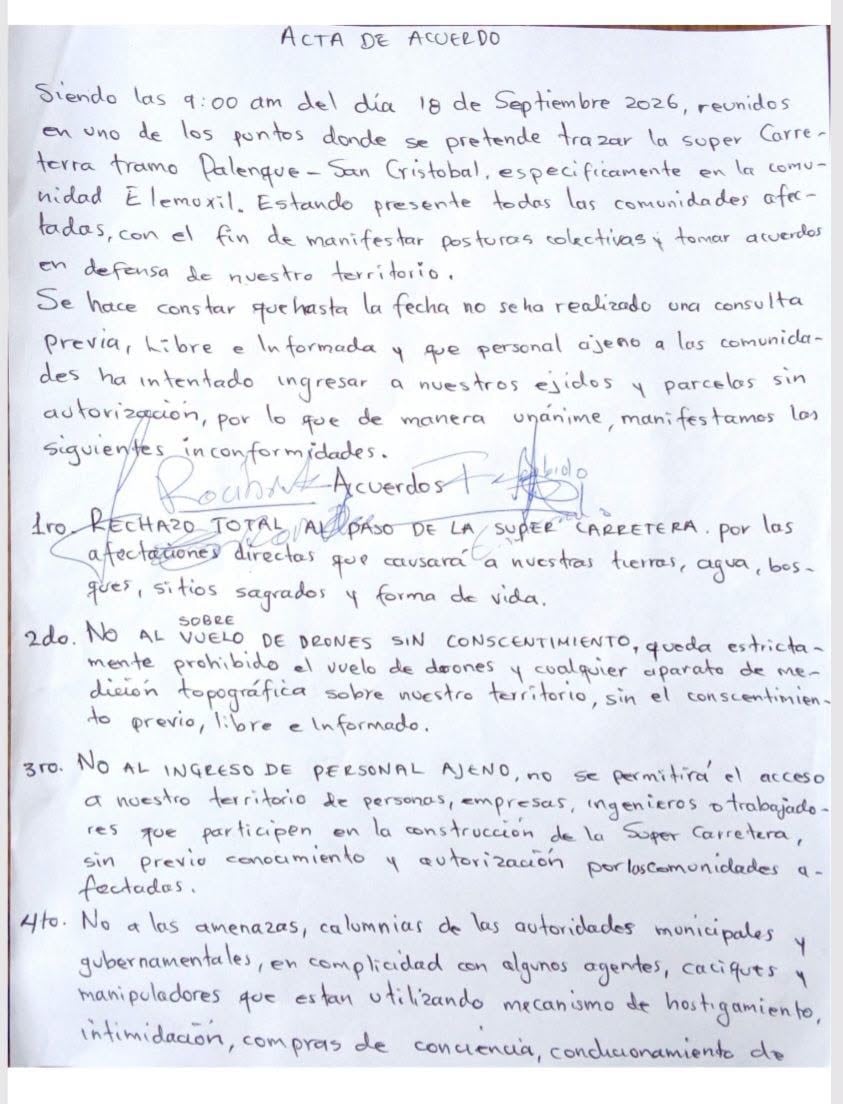 ACTA DE ACUERDO
Siendo las 9:00 am del día 18 de Septiembre 2026, reunidos
en uno de los puntos donde se pretende trazar la super Carre-
terra tramo Palenque - San Cristobal, especificamente en la comu-
nidad Elemoxil. Estando presente todas las comunidades afec-
tadas, con el fin de manifestar posturas colectivas y tomar acuerdos
en defensa de nuestro territorio.
Se hace constar que hasta la fecha no se ha realizado una consulta
Previa, Libre e Informada y que personal ajeno a las comunida-
des ha intentado ingresar a nuestros ejidos y parcelas sin
autorización, por lo que de manera unánime, manifestamos las
siguientes inconformidades.
Acuerdos
1ro. RECHAZO TOTAL AL PASO DE LA SUPER CARRETERA. por las
afectaciones directas que causará a nuestras tierras, agua, bos-
ques, sitios sagrados y forma de vida.
2do. NO AL SOBRE VUELO DE DRONES SIN CONSCENTIMIENTO, queda estricta-
mente prohibido el vuelo de drones y cualquier aparato de me-
dición topográfica sobre nuestro territorio, sin el conscentimien-
to previo, libre e Informado.
3ro. NO AL INGRESO DE PERSONAL AJENO, no se permitirá el acceso
a nuestro territorio de personas, empresas, ingenieros o trabajado-
res que participen en la construcción de la Super Carretera,
sin previo conocimiento y autorización por las comunidades a-
fectadas.
4to. No a las amenazas, calumnias de las autoridades municipales y
gubernamentales, en complicidad con algunos agentes, caciques y
manipuladores que estan utilizando mecanismo de hostigamiento,
intimidación, compras de conciencia, condicionamiento de